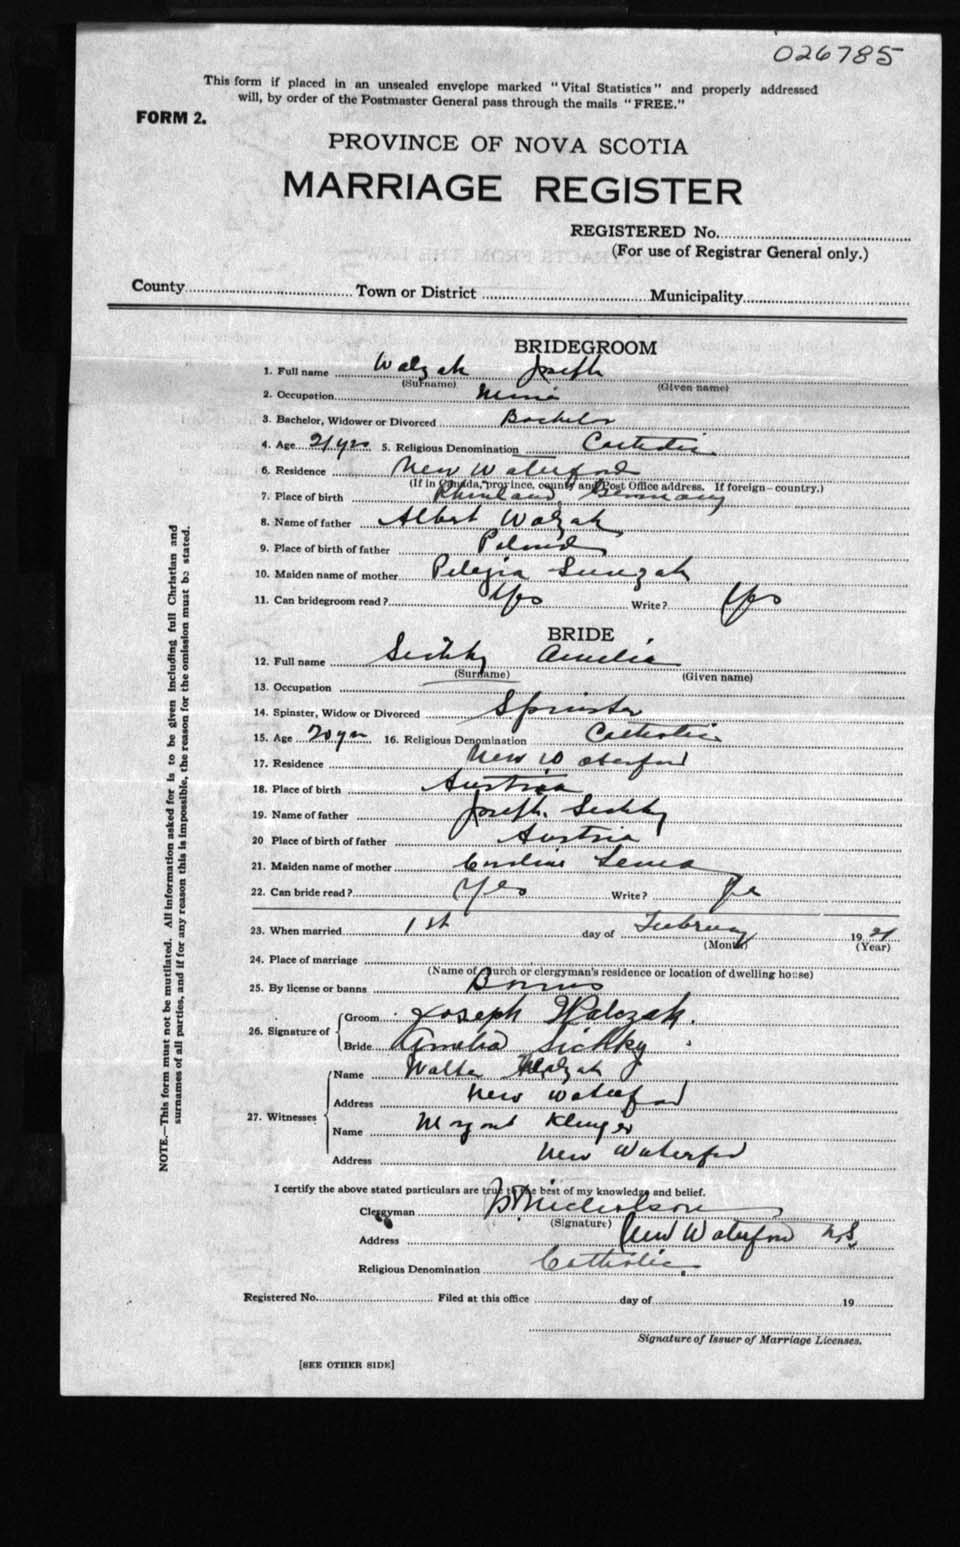 026785
This form if placed in an unsealed envelope marked "Vital Statistics" and properly addressed
will, by order of the Postmaster General pass through the mails "FREE."
FORM 2.
PROVINCE OF NOVA SCOTIA
MARRIAGE REGISTER
REGISTERED No.
(For use of Registrar General only.)
County Town or District Municipality
BRIDEGROOM
1. Full name Walzak Joseph
(Surname) (Given name)
2. Occupation
3. Bachelor, Widower or Divorced Bachelor
4. Age 21 yrs 5. Religious Denomination Catholic
6. Residence New Waterford
(If in Canada, province, county and Post Office address. If foreign—country.)
7. Place of birth Rhineland, Germany
8. Name of father Albert Walzak
9. Place of birth of father Poland
10. Maiden name of mother Pelagia
11. Can bridegroom read? Yes Write? Yes
BRIDE
12. Full name Sichky Amelia
(Surname) (Given name)
13. Occupation
14. Spinster, Widow or Divorced Spinster
15. Age 20 yrs 16. Religious Denomination Catholic
17. Residence New Waterford
18. Place of birth Austria
19. Name of father Joseph Sichky
20 Place of birth of father Austria
21. Maiden name of mother
22. Can bride read? Yes Write? Yes
23. When married 1st day of February 1921
(Month) (Year)
24. Place of marriage
(Name of church or clergyman's residence or location of dwelling house)
25. By license or banns Banns
26. Signature of Groom Joseph Walczak.
Bride Amelia Sichky
27. Witnesses Name Walter Walzak
Address New Waterford
Name Margaret Klinger
Address New Waterford
I certify the above stated particulars are true to the best of my knowledge and belief.
Clergyman Nicholson
(Signature)
Address New Waterford N.S.
Religious Denomination Catholic
Registered No. Filed at this office day of 19
Signature of Issuer of Marriage Licenses.
[SEE OTHER SIDE]
NOTE.—This form must not be mutilated. All information asked for is to be given including full Christian and
surnames of all parties, and if for any reason this is impossible, the reason for the omission must be stated.